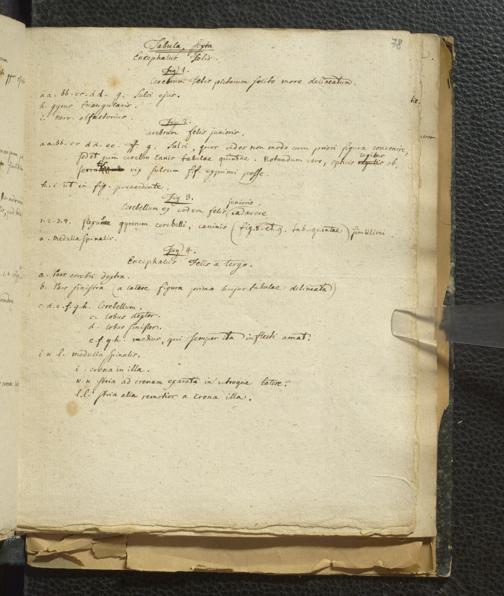 78
Tabula sexta
Encephalus Felis.
Fig. 1.
Cerebrum Felis solito more delineatum.
a a. bb. cc. d d. g. Sulci ejus.
h. gyrus triangularis.
i. nerv. olfactorius.
Fig. 2.
cerebrum felis junioris.
a a. bb. cc d d. ee. ff g. Sulci, quos vides non modo cum priori figura convenire,
sed et cum cerebro canis tabulae quintae. Notandum vero, ob,
vix sulcum fif exprimi posse.
h. i. ut in fig. praecedente.
Fig. 3.
Cerebellum ex eodem felis junioris cadavere
1. 2. 3. 4. gyrorum cerebelli, caninis (fig. 8. et 9. tab. quintae) simillimi.
a. medulla spinalis.
Fig. 4.
Encephalus Felis a tergo.
a. Pars cerebri dextra.
b. Pars sinistra (a latere figura prima hujus tabulae delineata)
c. d. e. f. g. h. Cerebellum.
c. lobus dexter.
d. lobus sinister.
e f g h. medius, qui semper ita inflecti amat.
i n l. medulla spinalis.
i. crena in illa.
n. n stria ad crenam exarata in utroque latere.
l. l. stria alia remotior a crena illa.